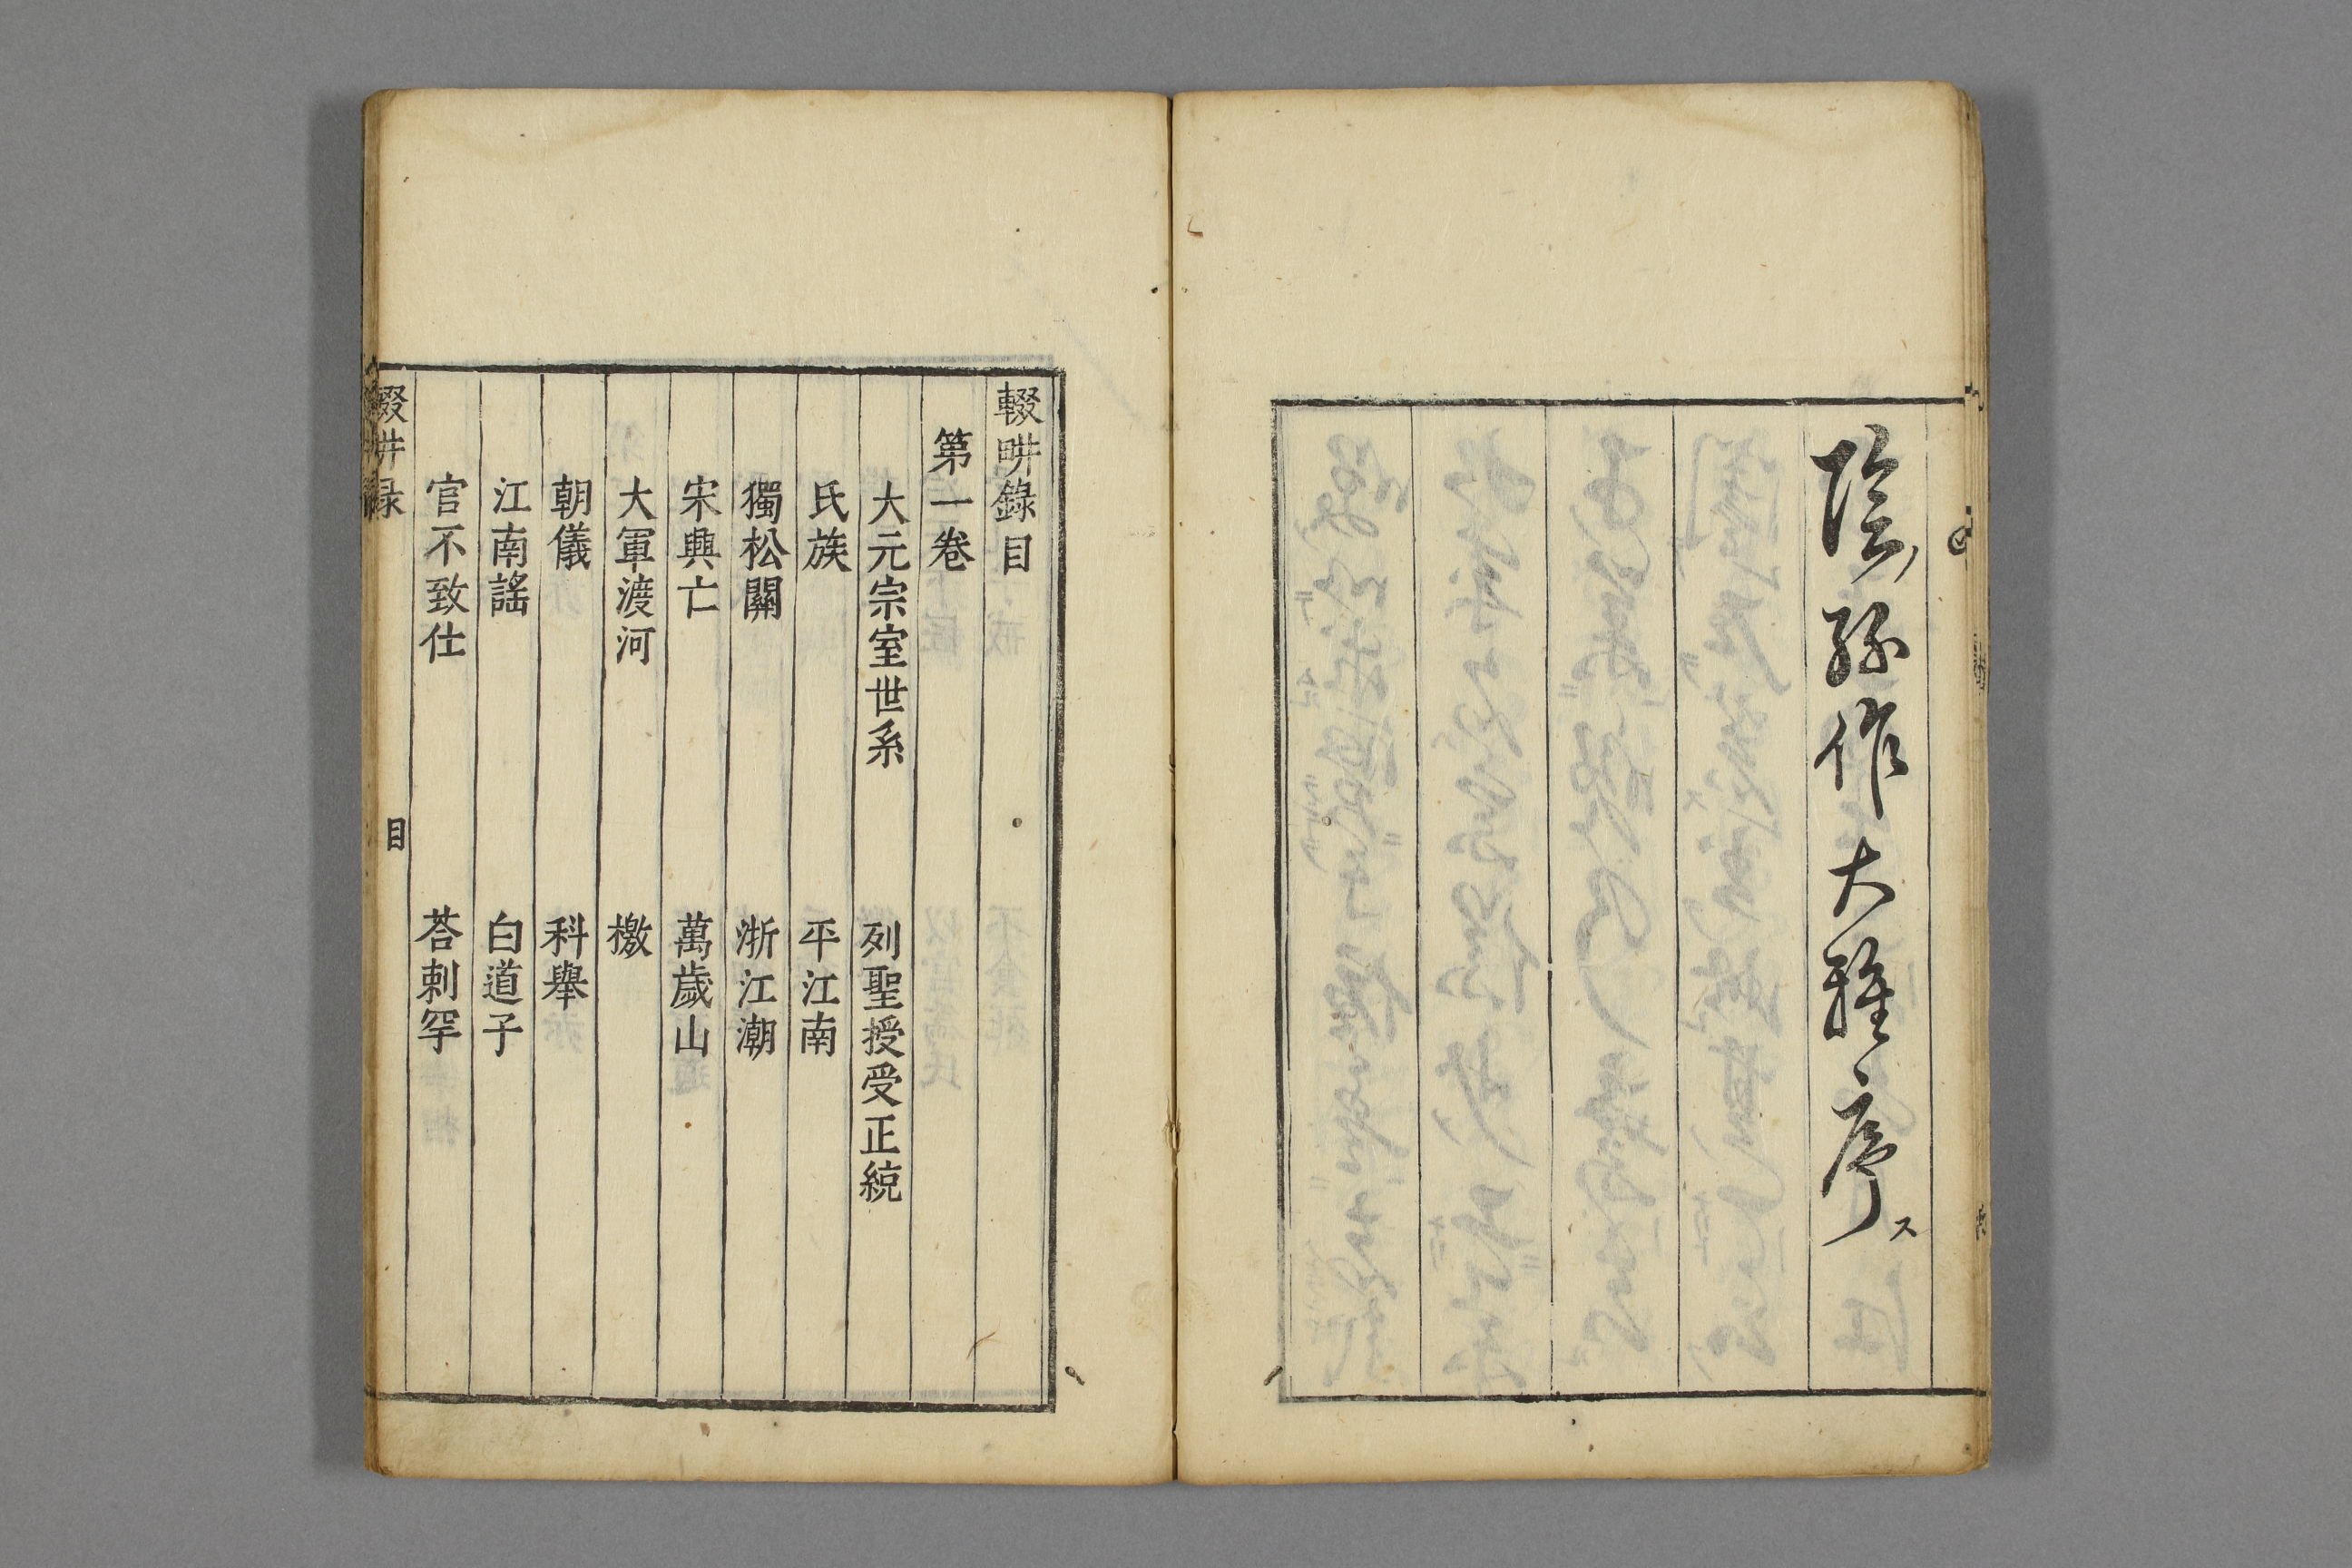 陰孫作大雅序ス
輟畊錄目
第一卷
大元宗室世系 列聖授受正統
氏族 平江南
獨松關 浙江潮
宋興亡 萬歲山
大軍渡河 檄
朝儀 科舉
江南謠 白道子
官不致仕 荅剌罕
目